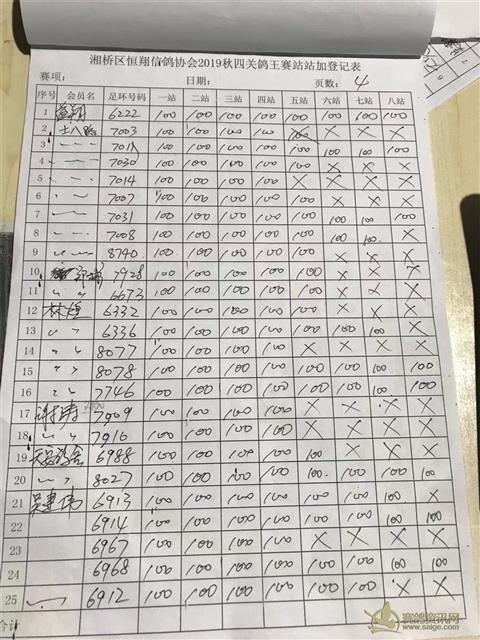 湘桥区恒翔信鸽协会2019秋四关鸽王赛站站加登记表
赛项： 日期： 页数：4
序号 会员名 足环号码 一站 二站 三站 四站 五站 六站 七站 八站
1 6222 100 100 100 100 100 100 100 100
2 7003 100 100 100 100 X X X
3 100 100 100 100 100 100 100 100
4 7030 100 100 100 100 100 X X X
5 7014 100 100 100 100 X X X X
6 7007 100 100 100 100 100 X X X
7 7031 100 100 100 100 100 100 100 100
8 7008 100 100 100 100 100 100 100 X
9 8740 100 100 100 100 100 X X X
10 7928 100 100 100 100 100 X X X
11 6673 100 100 100 100 100 X X X
12 林 6332 100 100 100 100 100 X X X
13 〃 〃 6336 100 100 100 100 100 100 100 X
14 〃 〃 8077 100 100 100 100 X X X X
15 〃 〃 8078 100 100 100 100 100 100 100 100
16 〃 〃 7746 100 100 100 100 100 100 100 100
17 7909 100 100 100 100 X X X X
18 〃 〃 7916 100 100 100 100 X X X X
19 6988 100 100 100 100 100 X X X
20 〃 〃 8027 100 100 100 100 100 100 100 100
21 6913 100 100 100 100 100 100 100 X
22 6914 100 100 100 100 100 100 100 100
23 6967 100 100 100 100 X X X X
24 6968 100 100 100 100 100 100 100 100
25 6912 100 100 100 100 100 100 X X
合计
赛鸽资讯网
www.saige.com